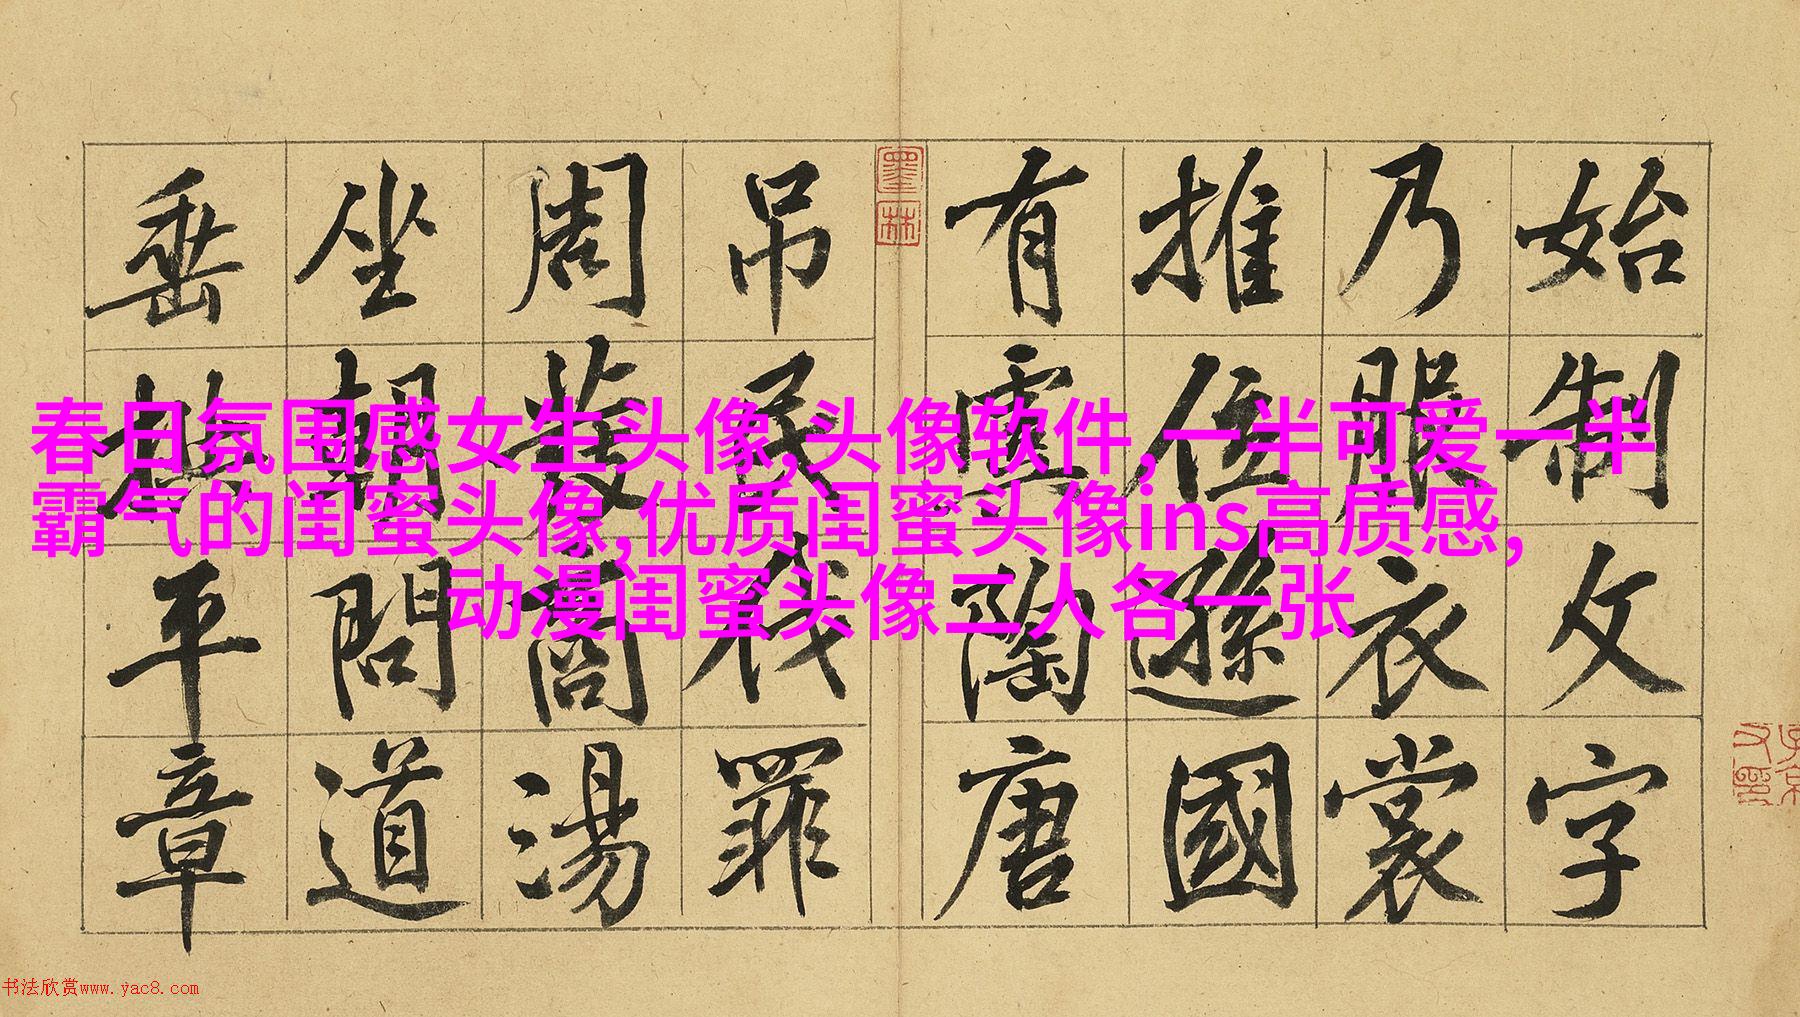 始制文字
乃服衣裳
推位遜國
有虞陶唐
墨林
吊民伐罪
周發商湯
坐朝問道
垂拱平章
春日氛围感女生头像,头像软件,一半可爱一半
霸气的闺蜜头像,优质闺蜜头像ins高质感,
动漫闺蜜头像二人各一张
书法欣赏www.yac8.com